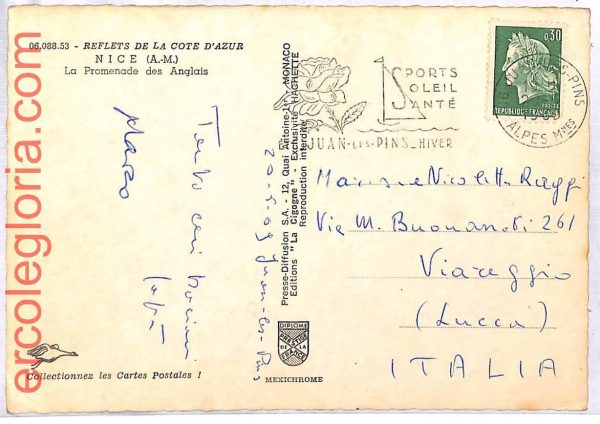 06.088.53 - REFLETS DE LA COTE D'AZUR
NICE (A.-M.)
La Promenade des Anglais
Tanti cari bacioni
Marzo
Collectionnez les Cartes Postales !
ercolegloria.com
Presse-Diffusion S.A. - 12, Quai Antoine-1er MONACO
Editions "La Cigogne" - Exclusivité HACHETTE
Reproduction interdite
Juan-les-Pins
DIPLOME
PRESTIGE
DE LA
FRANCE
MEXICHROME
SPORTS
SOLEIL
SANTÉ
JUAN-LES-PINS_HIVER
0,30
POSTES
REPUBLIQUE FRANÇAISE
ALPES Mmes
Nicoletta Raggi
Via M. Buonarroti 261
Viareggio
(Lucca)
ITALIA